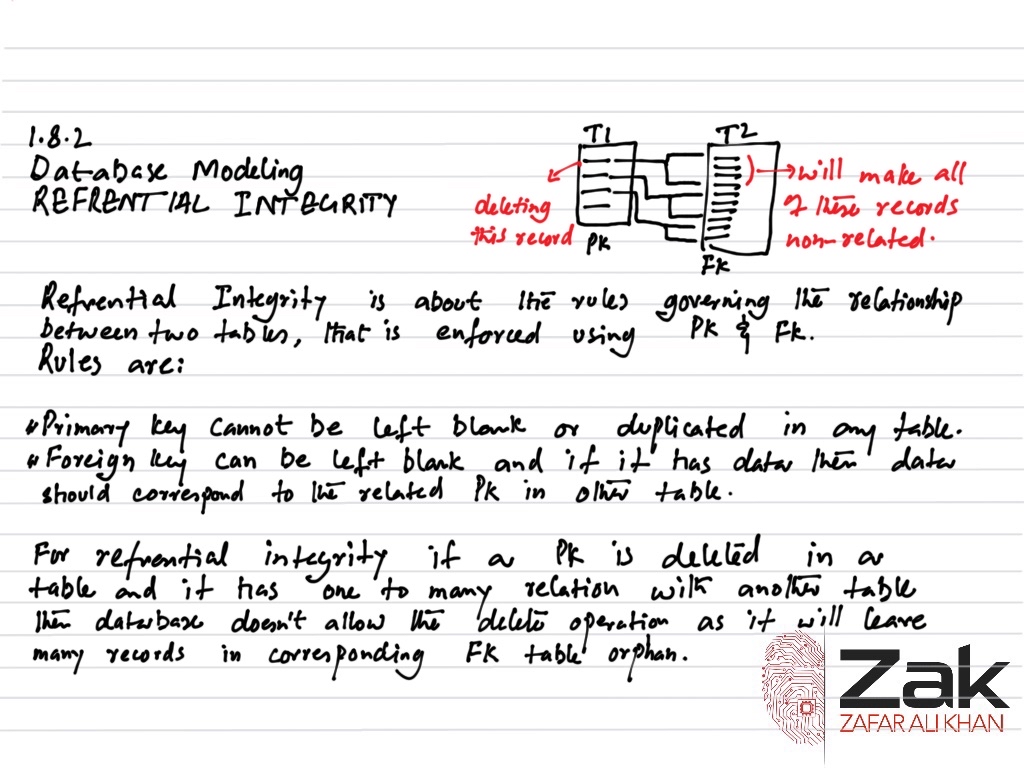 1.8.2
Database Modeling
REFRENTIAL INTEGRITY
T1
T2
deleting
this record
PK
FK
will make all
of these records
non-related.
Refrential Integrity is about the rules governing the relationship
between two tables, that is enforced using PK & FK.
Rules are:
* Primary key cannot be left blank or duplicated in any table.
* Foreign key can be left blank and if it has data then data
should correspond to the related PK in other table.
For refrential integrity if a PK is deleted in a
table and it has one to many relation with another table
then database doesn't allow the delete operation as it will leave
many records in corresponding FK table orphan.
Zak
ZAFAR ALI KHAN